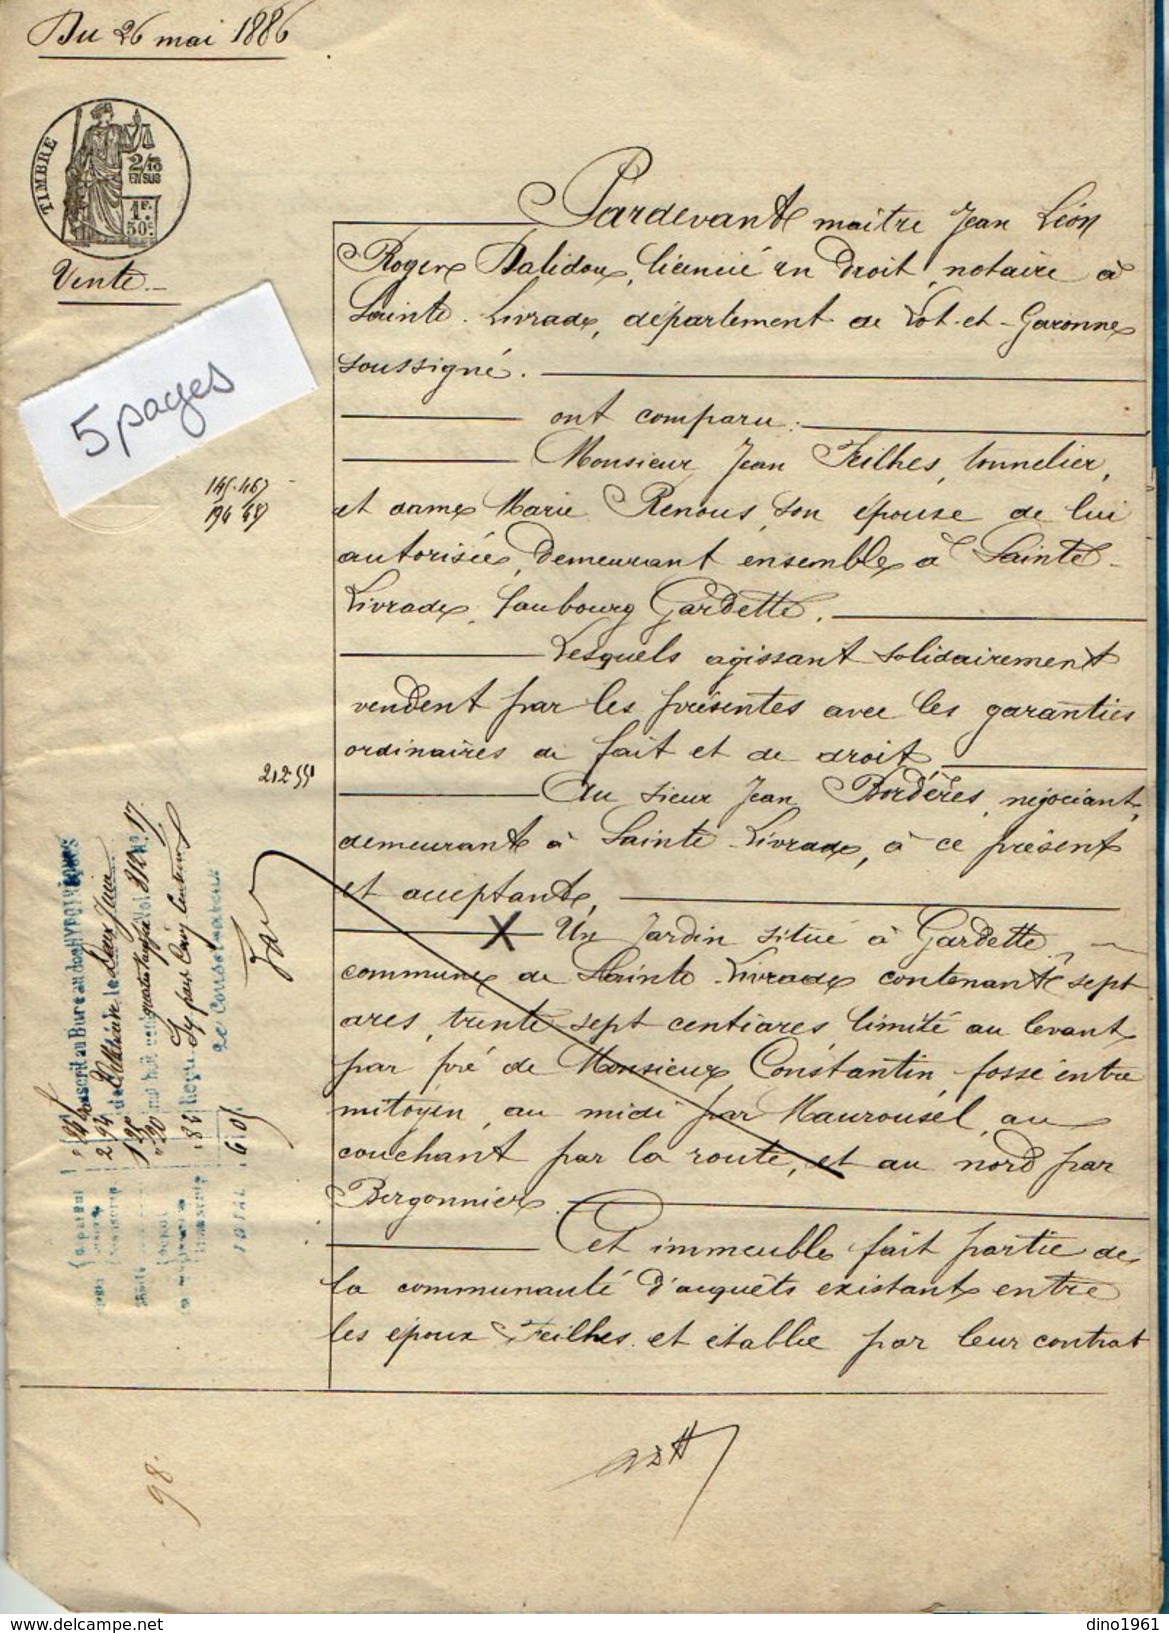 Du 26 mai 1886
TIMBRE
2/10
EN SUS
1F.
50c.
Vente
5 pages
Pardevant maître Jean Léon
Roger Dalidou, licencié en droit, notaire à
Sainte-Livrade, département de Lot-et-Garonne
soussigné.
ont comparu:
Monsieur Jean Feilhes, tonnelier,
et dame Marie Renous, son épouse de lui
autorisée, demeurant ensemble à Sainte-
Livrade, faubourg Gardette.
Lesquels agissant solidairement
vendent par les présentes avec les garanties
ordinaires de fait et de droit
2,255
Au sieur Jean Bordères, négociant,
demeurant à Sainte-Livrade, à ce présent
et acceptant,
X Un Jardin situé à Gardette,
commune de Sainte-Livrade contenant sept
ares, trente-sept centiares limité au levant
par pré de Monsieur Constantin, fossé entre
mitoyen, au midi par Maurousel, au
couchant par la route, et au nord par
Bergonnier.
Cet immeuble fait partie de
la communauté d'acquêts existant entre
les époux Feilhes et établie par leur contrat
Transcrit au Bureau des HYPOTHÈQUES
de Villeneuve le deux Juin
Le Conservateur
TOTAL
98.
dino1961